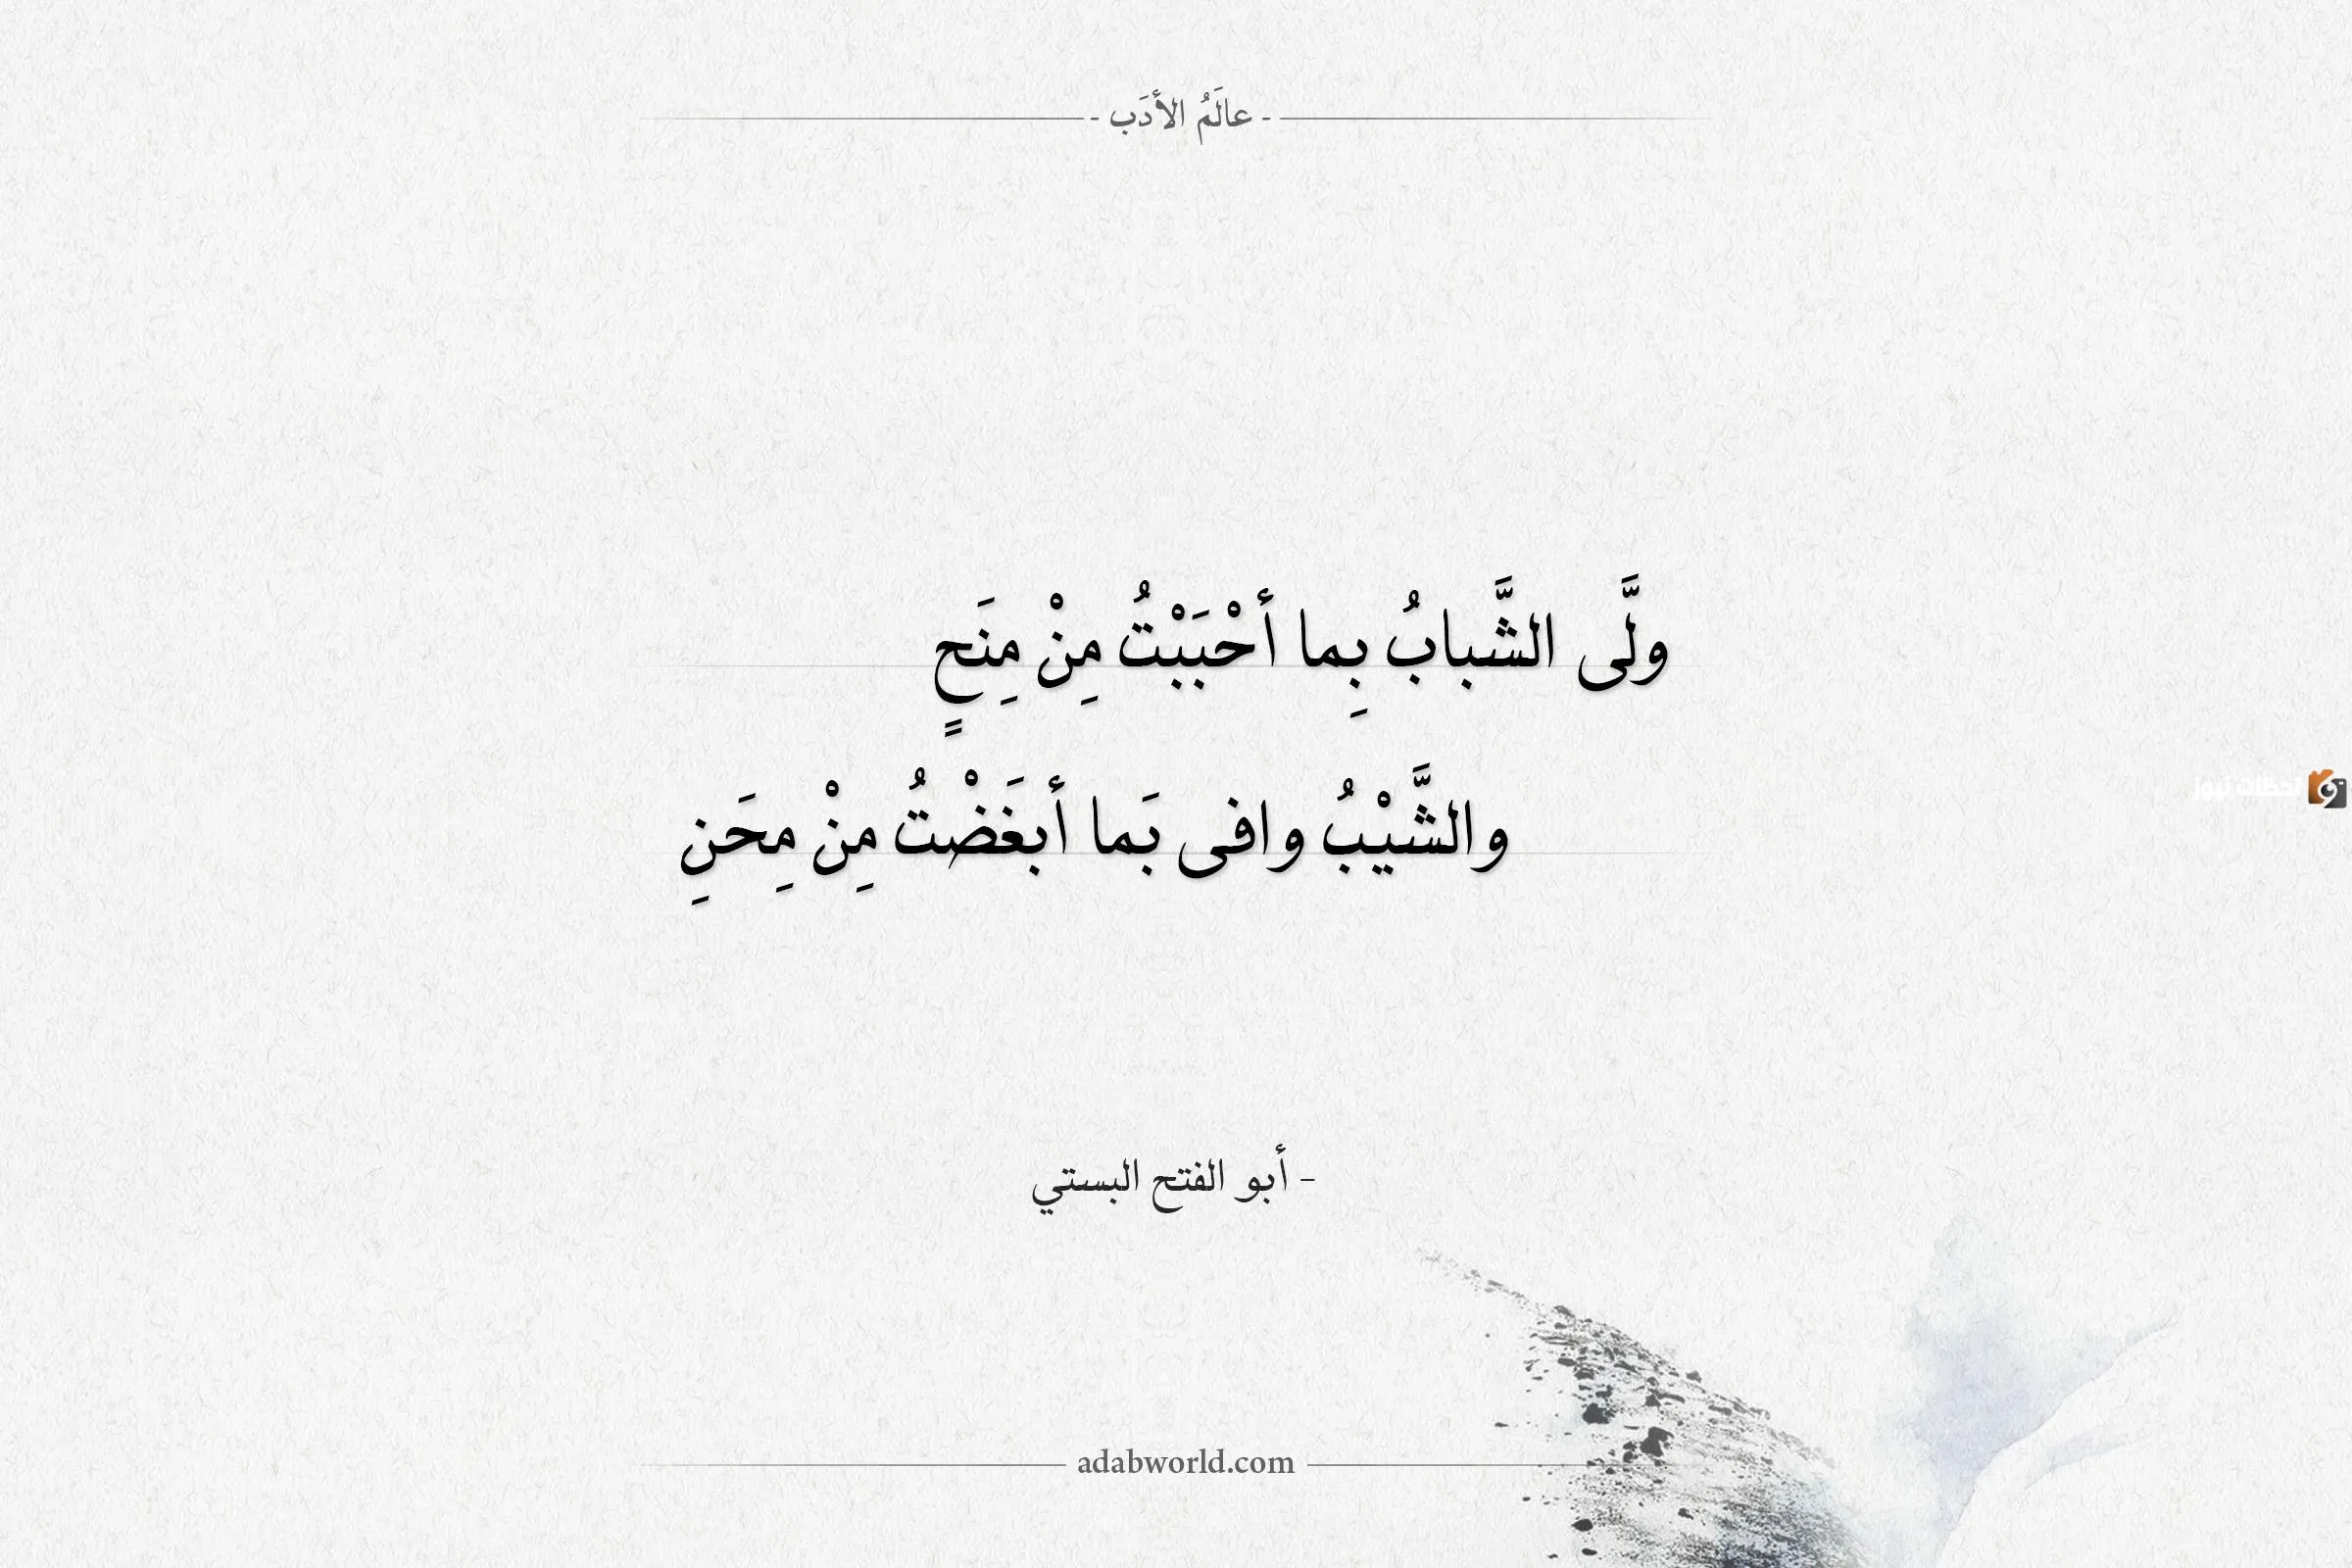 - عالَمُ الأدَب -
ولَّى الشَّبابُ بِما أحْبَبْتُ مِنْ مِنَحٍ
والشَّيْبُ وافى بَما أبغَضْتُ مِنْ مِحَنِ
- أبو الفتح البستي
adabworld.com